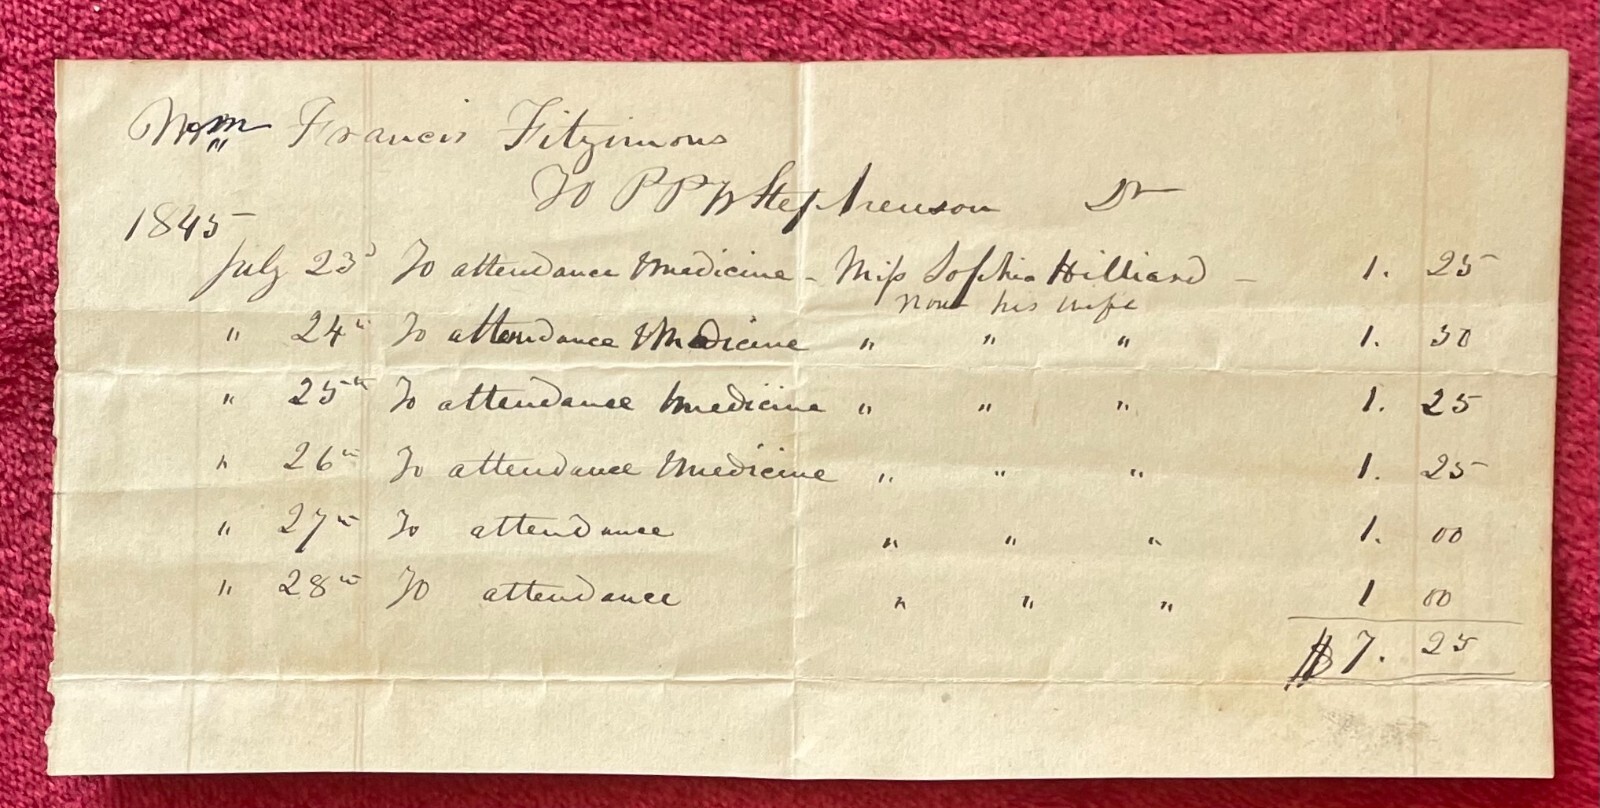 Francis Fitzimons
To P P W Stephenson Dr
1845
July 23d To attendance & medicine - Miss Sophia Hilliard - 1. 25
now his wife
" 24th To attendance & Medicine " " " 1. 50
" 25th To attendance & medicine " " " 1. 25
" 26th To attendance & medicine " " " 1. 25
" 27th To attendance " " " 1. 00
" 28th To attendance " " " 1 00
$ 7. 25